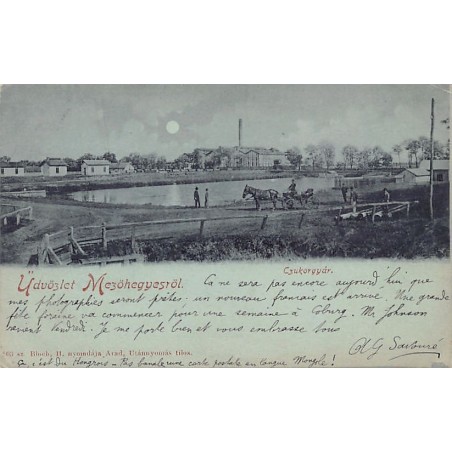 Üdvözlet Mezőhegyesről.
Czukorgyár.
Ce ne sera pas encore aujourd'hui que
mes photographies seront prêtes; un nouveau français est arrivé. Une grande
fête foraine va commencer pour une semaine à Coburg. Mr Johnson
revient Vendredi. Je me porte bien et vous embrasse tous
sz. Bloch, H. nyomdája Arad, Utánnyomás tilos.
Ça c'est du Hongrois - Pas banale une carte postale en langue Mongole!